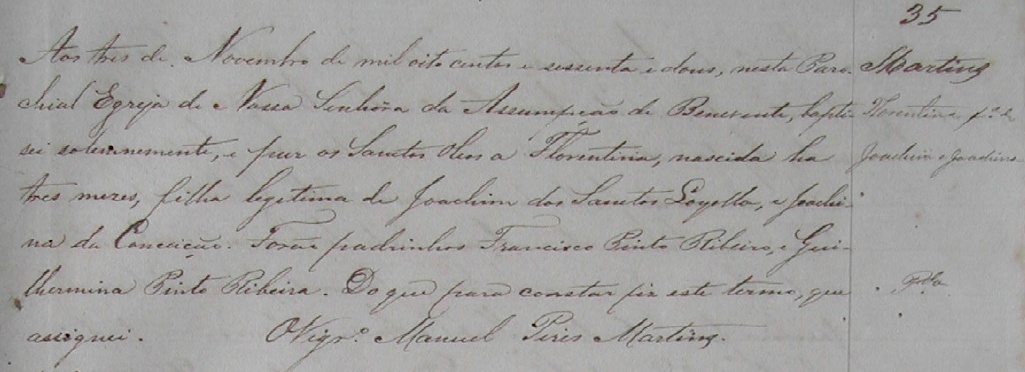 35
Aos tres de Novembro de mil oito centos e sessenta e dous, nesta Paro-
chial Egreja de Nossa Senhora da Assumpção de Benevente, bapti-
sei solemnemente, e puz os Santos Oleos a Florentina, nascida ha
tres mezes, filha legitima de Joachim dos Santos Loyolla, e Joachi-
na da Conceição. Forão padrinhos Francisco Pinto Ribeiro, e Gui-
lhermina Pinto Ribeira. Do que para constar fiz este termo, que
assignei. O Vigrº. Manuel Pires Martins.
Martins
Florentina fª de
Joachim e Joachina